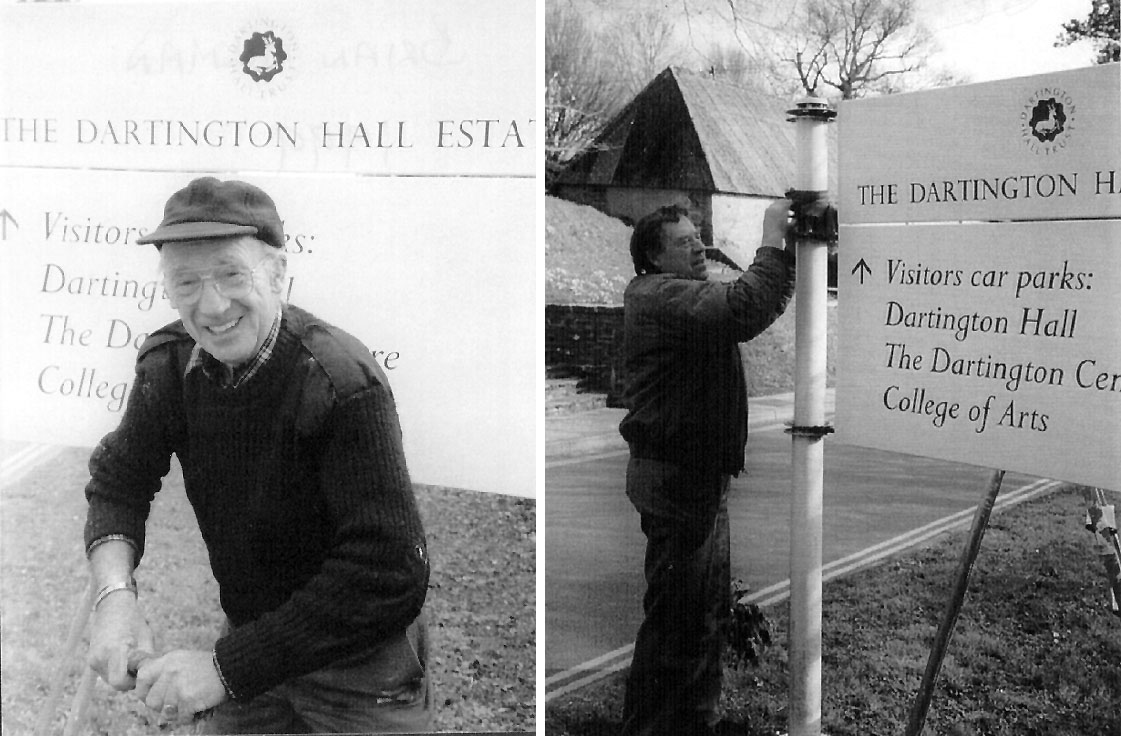 THE DARTINGTON HALL ESTAT
Visitors es:
Darting l
The Da re
Colleg
DARTINGTON
HALL TRUST
THE DARTINGTON HA
Visitors car parks:
Dartington Hall
The Dartington Cen
College of Arts